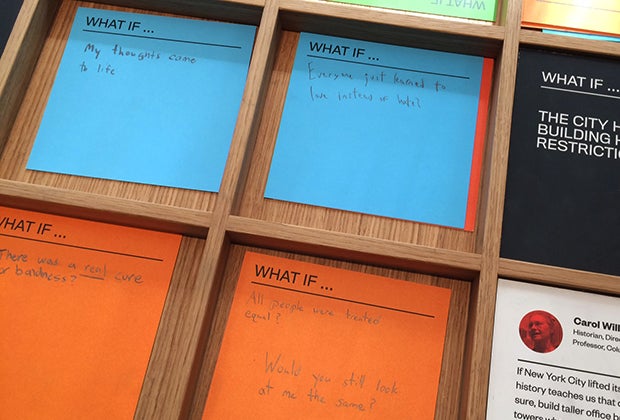 WHAT IF
WHAT IF ...
My thoughts came
to life
WHAT IF ...
Everyone just learned to
love instead of hate?
WHAT IF ...
THE CITY H
BUILDING H
RESTRICTI
WHAT IF ...
There was a real cure
or baldness?
WHAT IF ...
All people were treated
equal?
Would you still look
at me the same?
Carol Will
Historian, Dire
Professor, Colu
If New York City lifted its
history teaches us that d
sure, build taller office b
towers wh